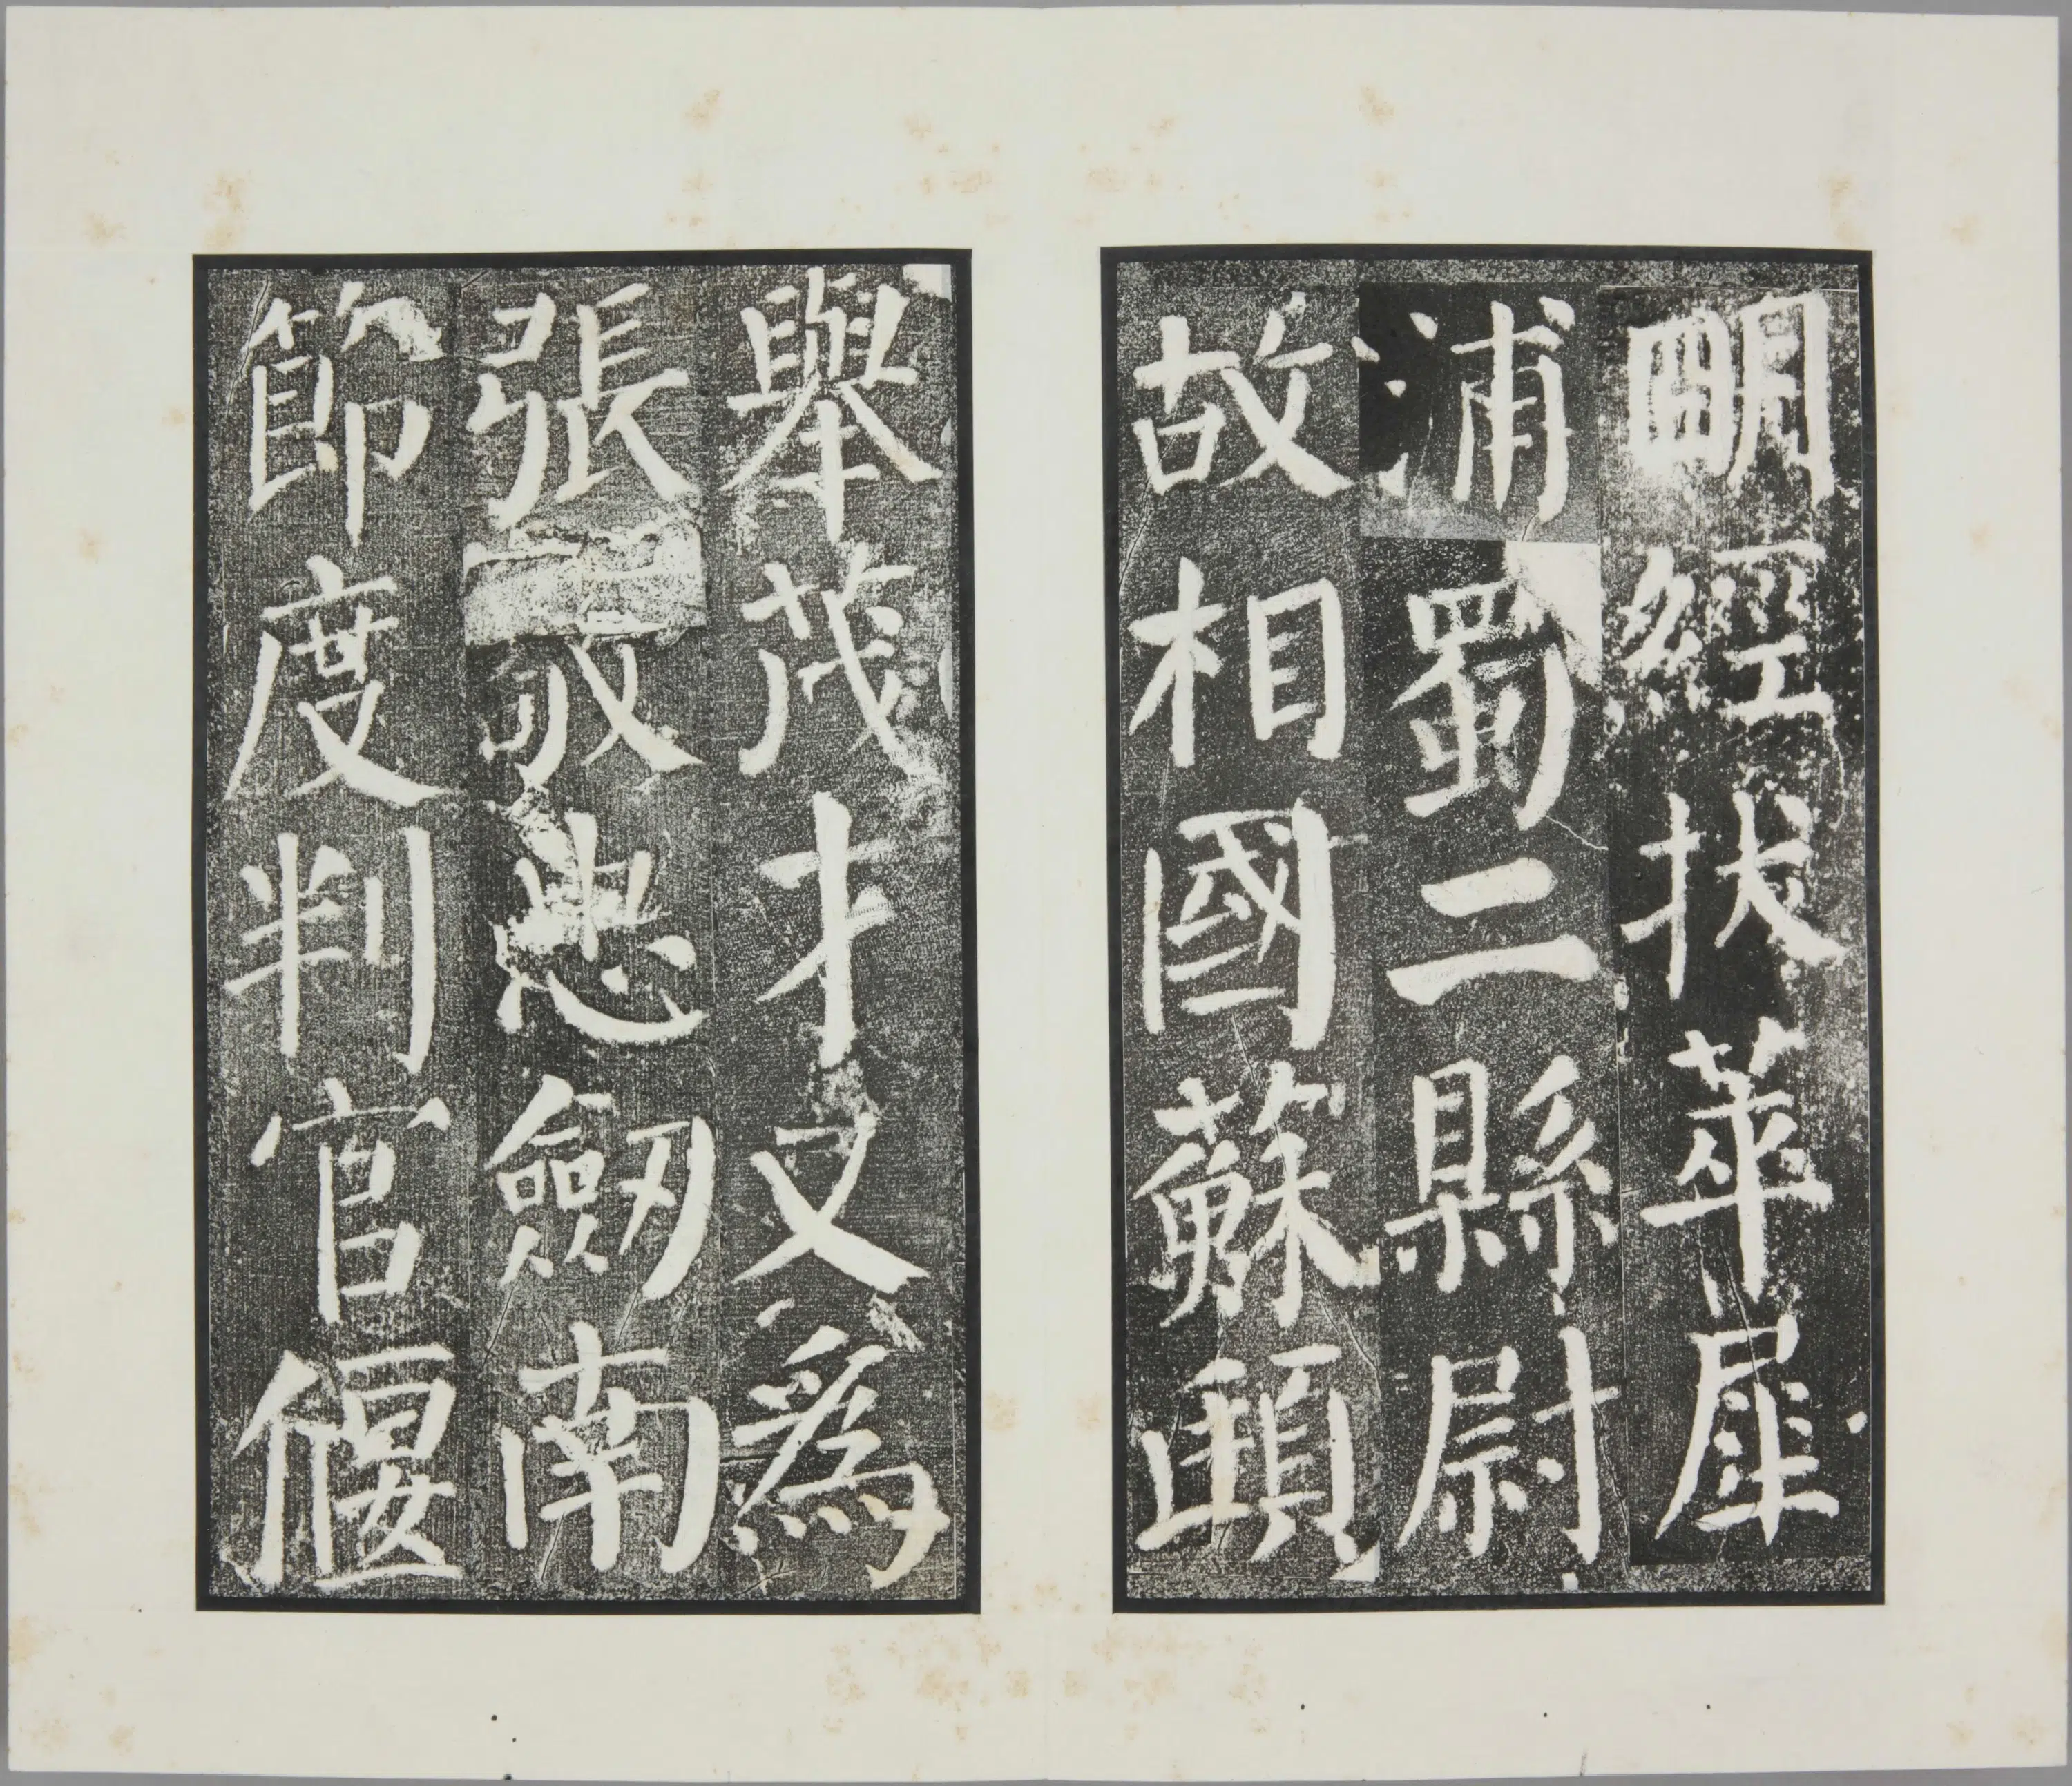 朙經拔萃犀
浦蜀二縣尉
故相國蘇頲
舉茂才又爲
張敬忠劒南
節度判官偃